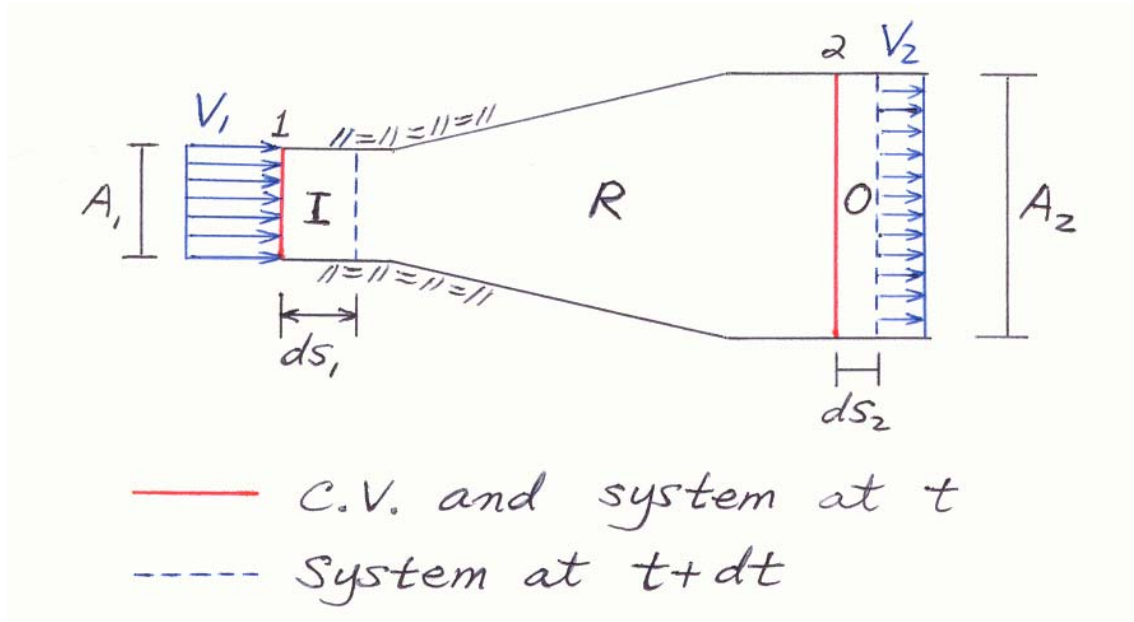 2 V₂
V₁ 1
A₁ I R O A₂
ds₁
ds₂
C.V. and system at t
System at t+dt